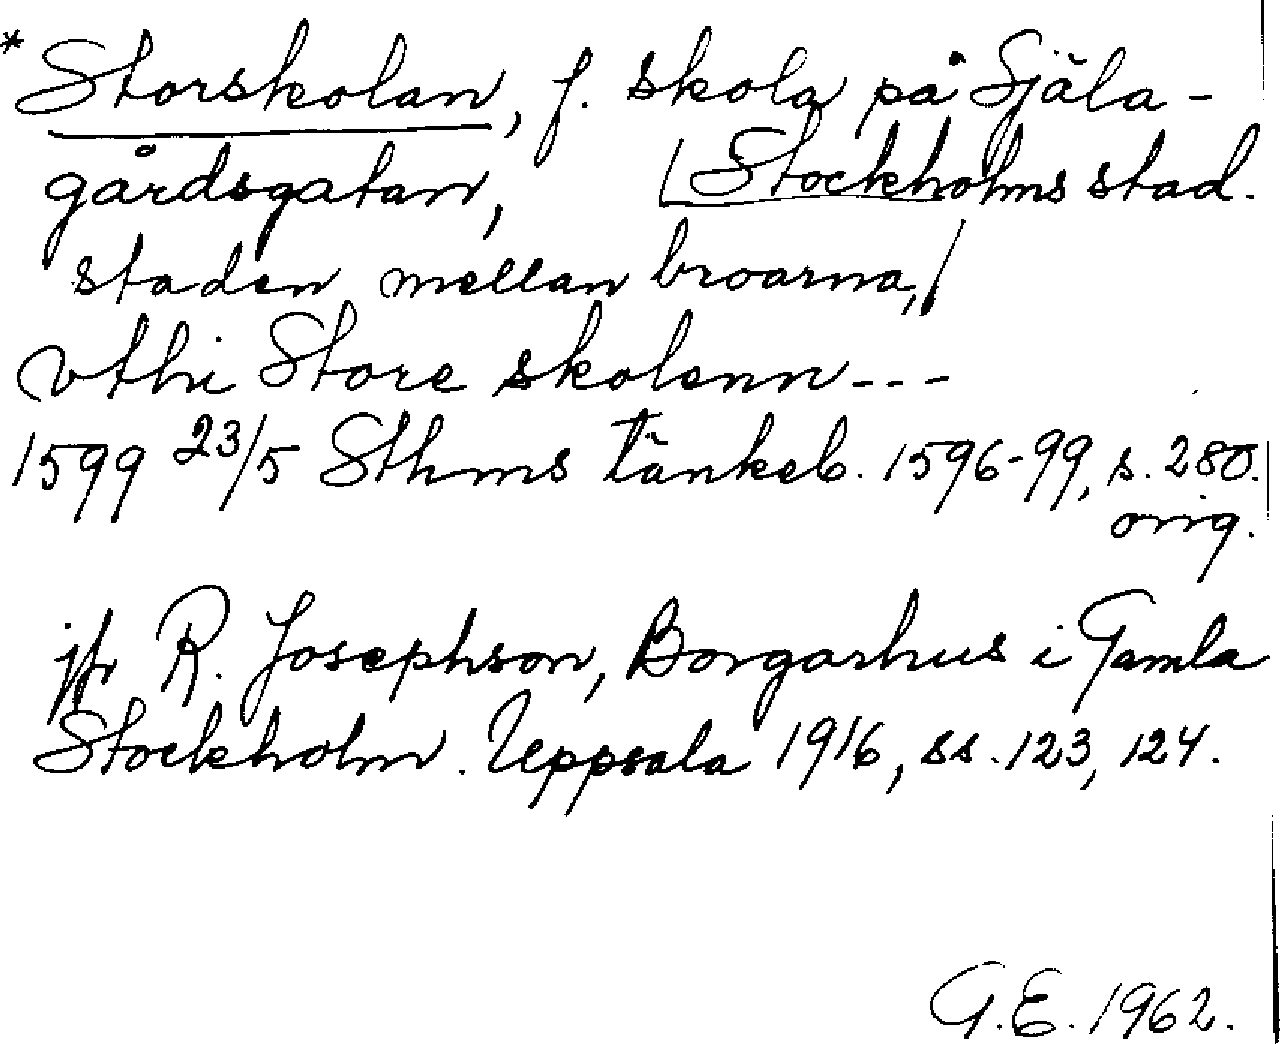 * Storskolan, f. skola på Själa-
gårdsgatan, Stockholms stad.
staden mellan broarna,
vthi Store skolenn---
1599 23/5 Sthms tänkeb. 1596-99, s. 280.
orig.
jfr R. Josephson, Borgarhus i Gamla
Stockholm. Uppsala 1916, ss. 123, 124.
G.E. 1962.